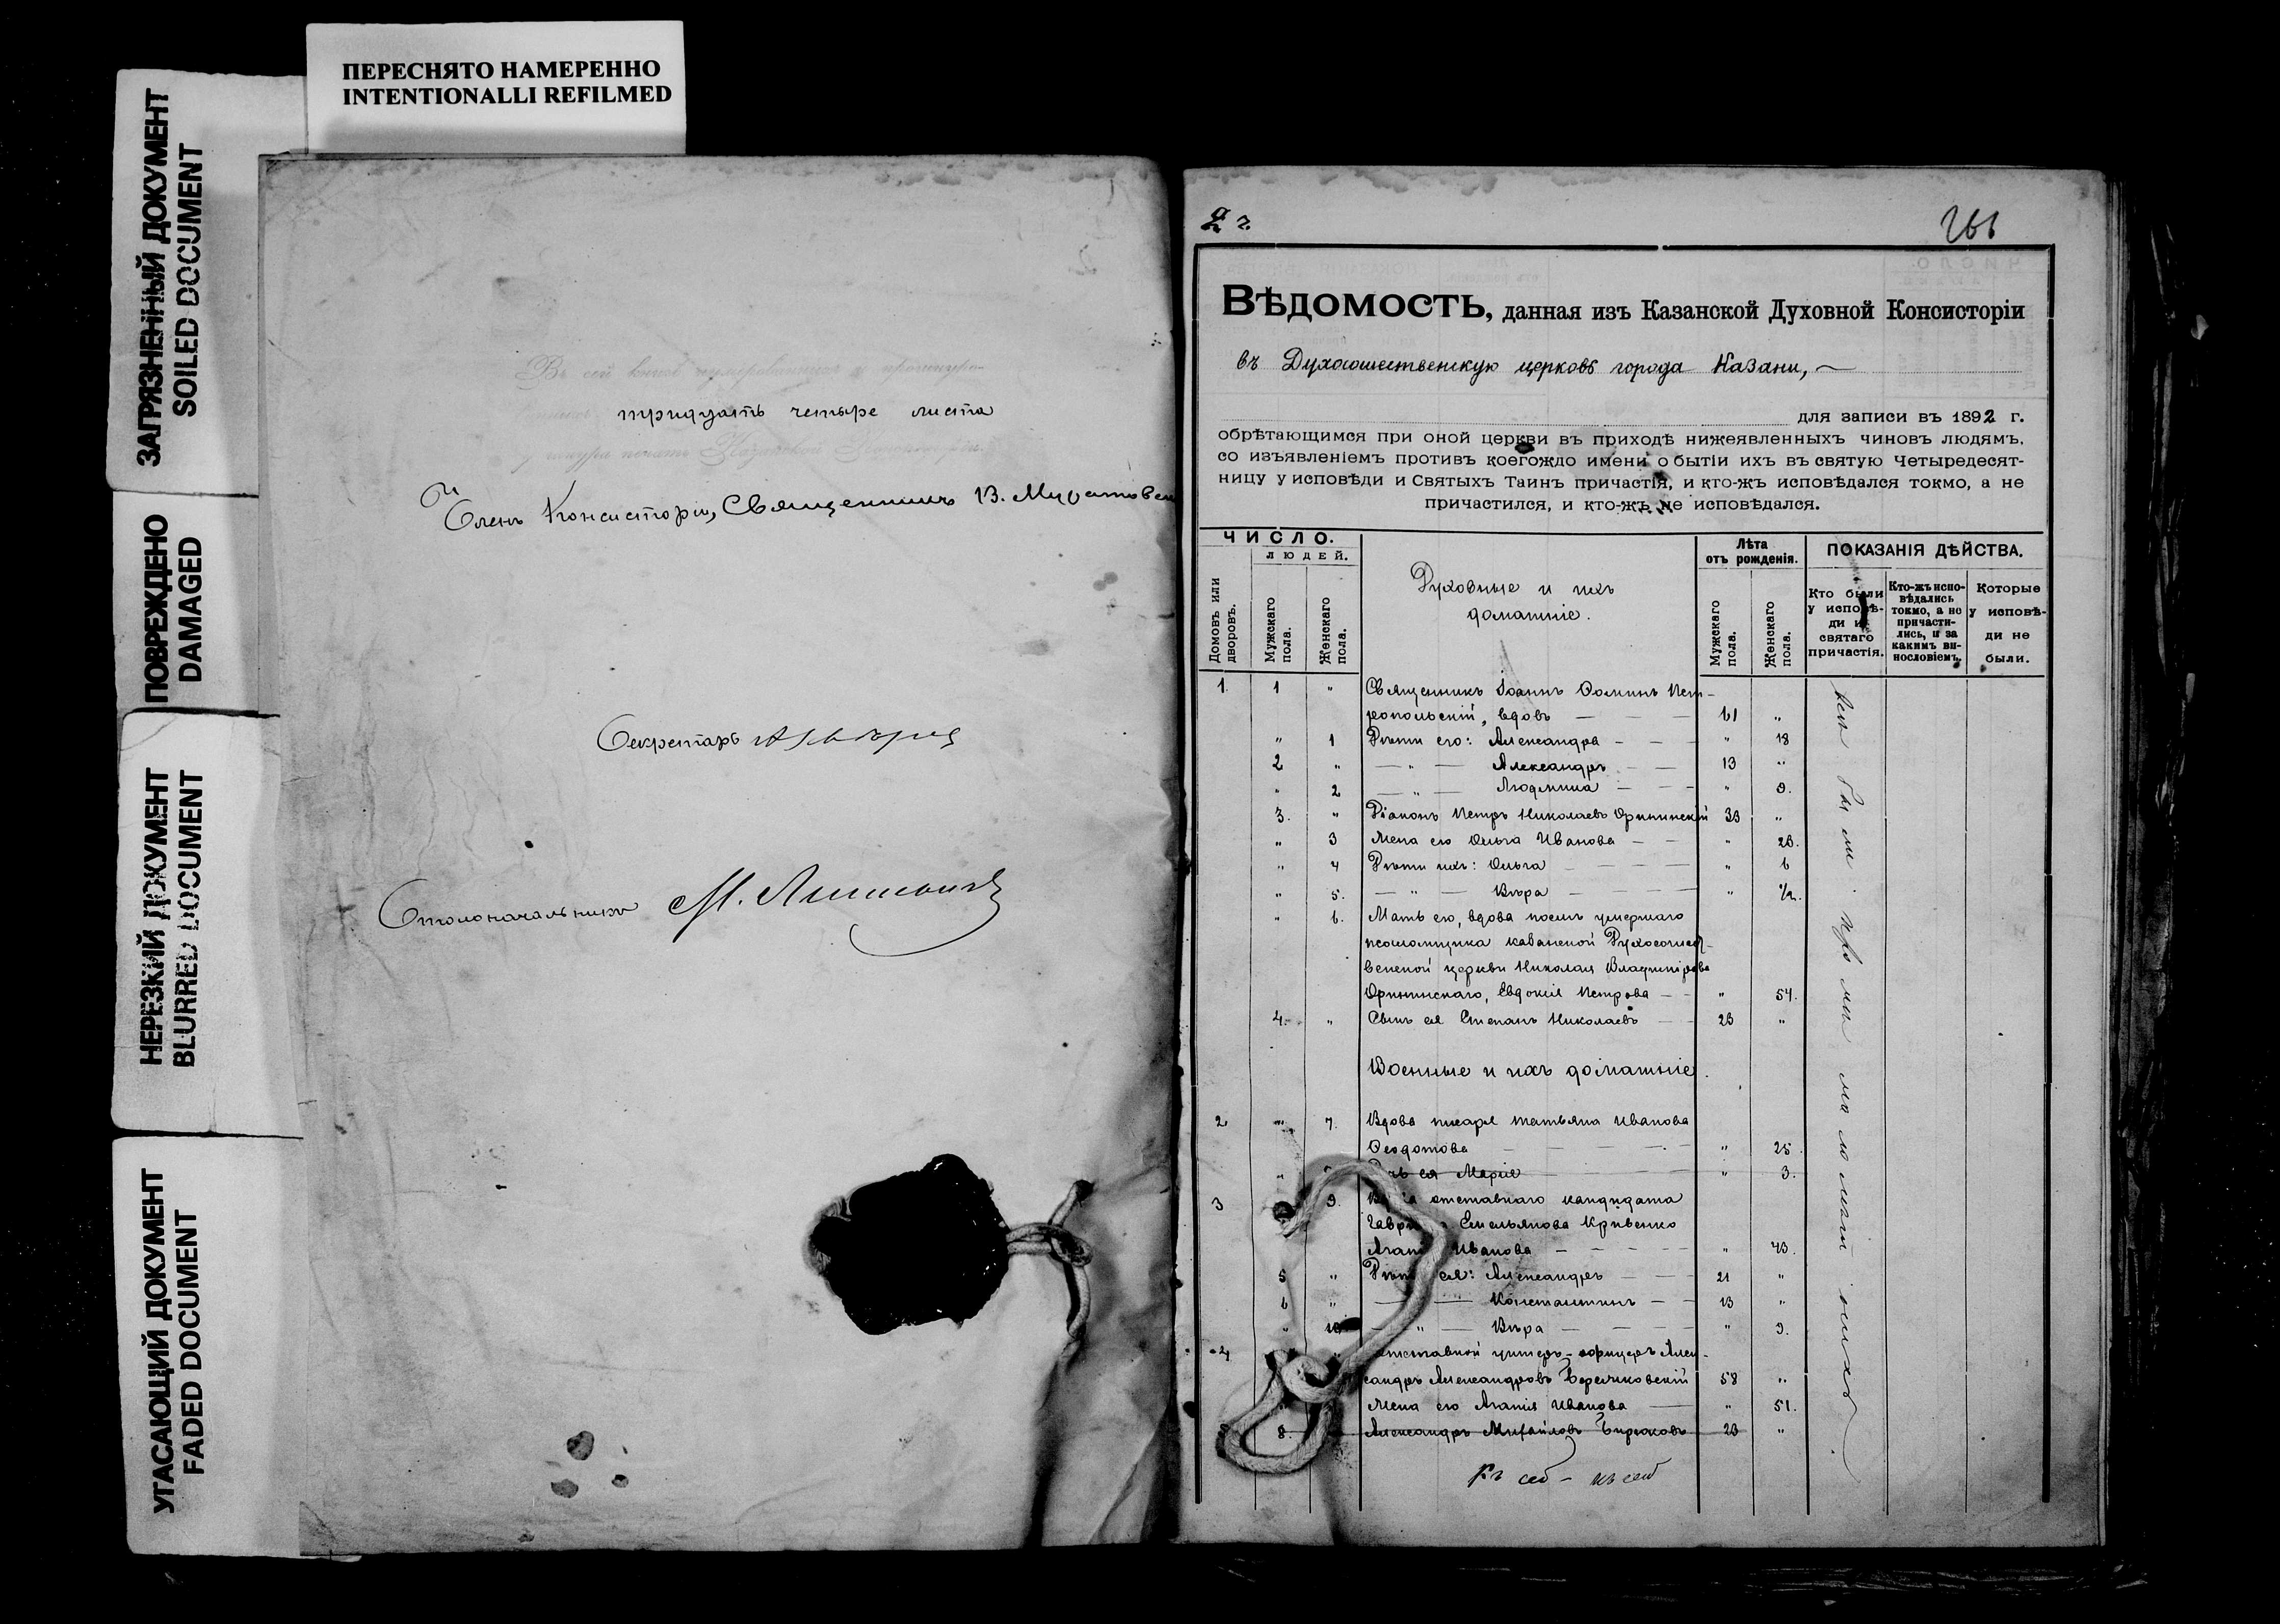 ПЕРЕСНЯТО НАМЕРЕННО
INTENTIONALLI REFILMED
ЗАГРЯЗНЕННЫЙ ДОКУМЕНТ
SOILED DOCUMENT
ПОВРЕЖДЕНО
DAMAGED
НЕРЕЗКИЙ ДОКУМЕНТ
BLURRED DOCUMENT
УГАСАЮЩИЙ ДОКУМЕНТ
FADED DOCUMENT
Въ сей книгѣ нумерованныхъ и прошнуро-
тридцать четыре листа
у шнура печать Казанской
Членъ Консисторіи, Священникъ В.
Секретарь
Столоначальникъ М.
ВѢДОМОСТЬ, данная изъ Казанской Духовной Консисторіи
въ Духосошественскую церковь города Казани,
для записи въ 1892 г.
обрѣтающимся при оной церкви въ приходѣ нижеявленныхъ чиновъ людямъ,
со изъявленіемъ противъ коегождо имени о бытіи ихъ въ святую Четыредесят-
ницу у исповѣди и Святыхъ Таинъ причастія, и кто-жъ исповѣдался токмо, а не
причастился, и кто-жъ не исповѣдался.
ЧИСЛО.
людей.
Домовъ или дворовъ.
Мужскаго пола.
Женскаго пола.
Духовные и ихъ
домашніе.
Лѣта
отъ рожденія.
Мужскаго пола.
Женскаго пола.
ПОКАЗАНІЯ ДѢЙСТВА.
Кто были у исповѣ-ди и святаго причастія.
Кто-жъ испо-вѣдались токмо, а не причасти-лись, и за какимъ ви-нословіемъ.
Которые у исповѣ-ди не были.
1. 1 " Священникъ Іоаннъ Ѳоминъ Пет-
ропольскій, вдовъ — — — 61 "
" 1 Дѣти его: Александра — — — " 18
2 " — " — Александръ — — 13 "
" 2 — " — Людмила — — — " 9.
3. " Діаконъ Петръ Николаевъ Орининскій 33 "
" 3 Жена его Ольга Иванова — — " 23.
" 4 Дѣти ихъ: Ольга — — — " 6
" 5. — " — Вѣра — — — " 1/2.
" 6. Мать его, вдова послѣ умершаго
псаломщика казанской Духосошест-
венской церкви Николая Владимірова
Орининскаго, Евдокія Петрова — — " 54.
4. " Сынъ ея Степанъ Николаевъ — — 23 "
Военные и ихъ домашніе.
2 " 7. Вдова писаря Татьяна Иванова
Ѳеодотова — — — — " 25
" Дочь ея Марія — — — " 3.
3 9. отставнаго кандидата
Емельянова Кривенко
Иванова — — — — " 43.
5 " Дѣти ея: Александръ — — — 21 "
6 " — " — Константинъ — — 13 "
" 10 — " — Вѣра — — — " 9.
4 Отставной унтеръ-офицеръ Алек-
сандръ Александровъ 58 "
Жена его Агапія Иванова — — " 51.
8. Александръ Михайловъ Бирюковъ 23 "